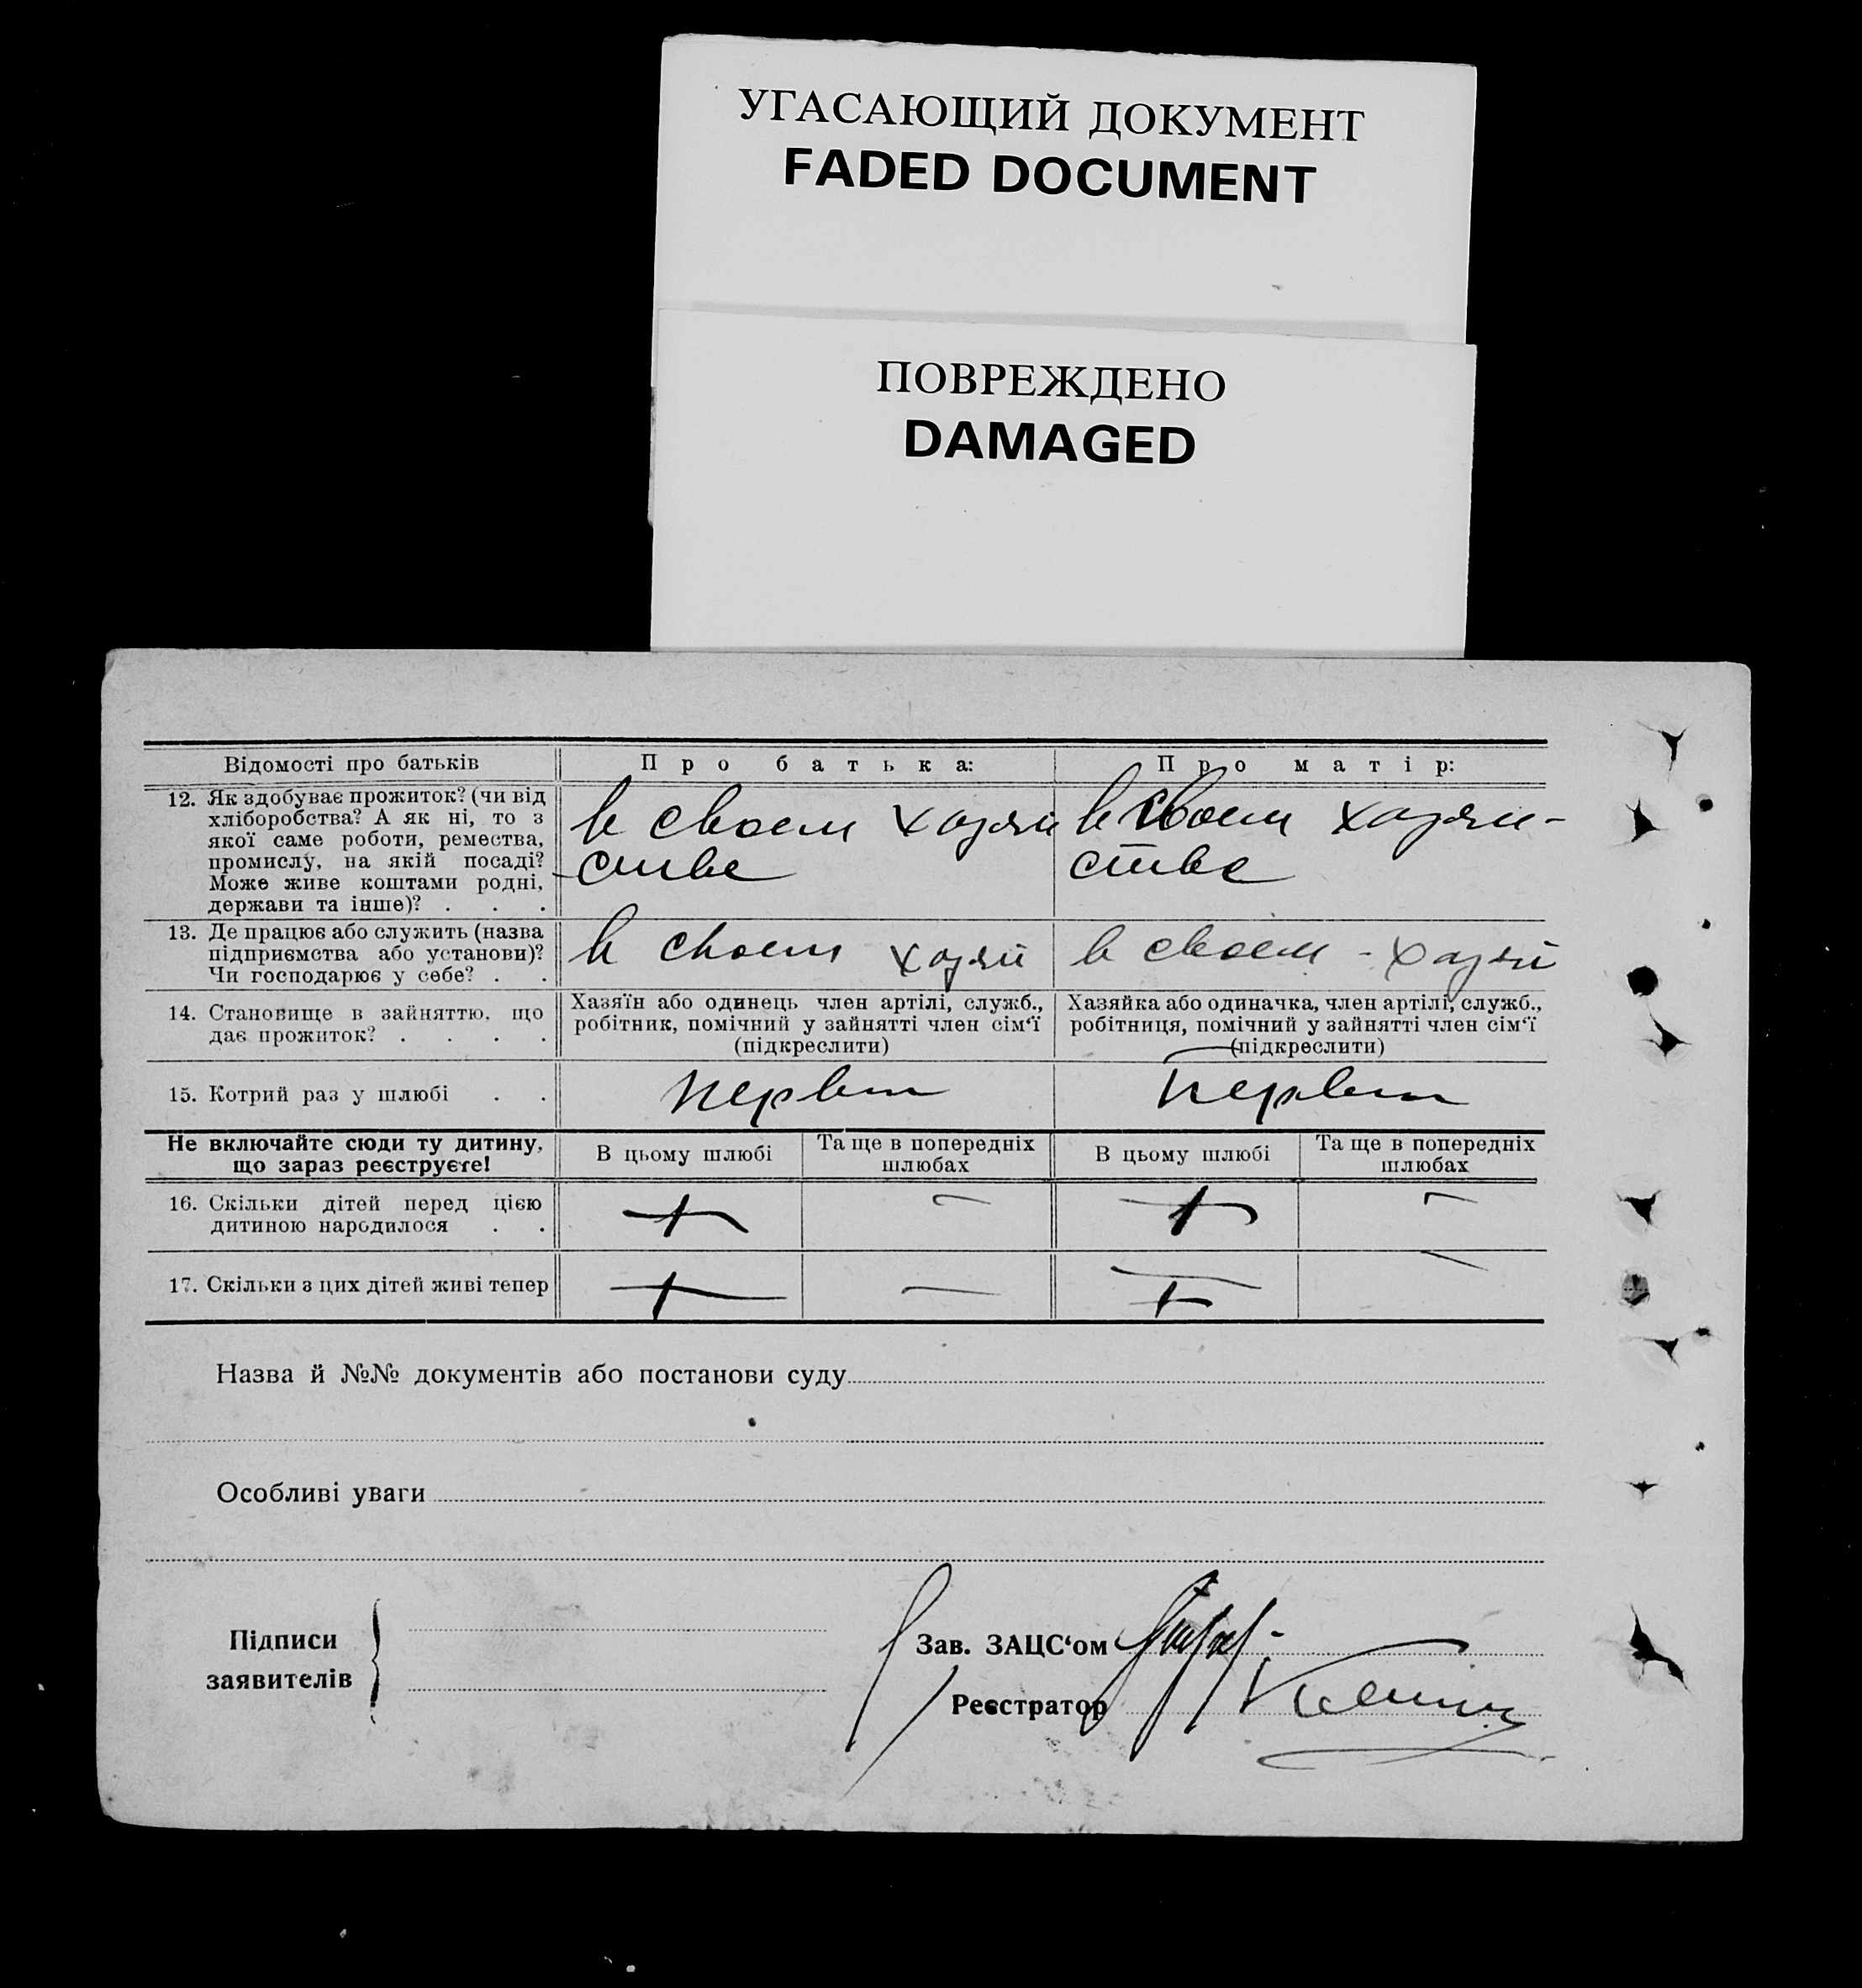 УГАСАЮЩИЙ ДОКУМЕНТ
FADED DOCUMENT
ПОВРЕЖДЕНО
DAMAGED
Відомості про батьків
Про батька:
Про матір:
12. Як здобуває прожиток? (чи від
хліборобства? А як ні, то з
якої саме роботи, ремества,
промислу, на якій посаді?
Може живе коштами родні,
держави та інше)? . . .
в своем хазяй
стве
в своем хазяй-
стве
13. Де працює або служить (назва
підприємства або установи)?
Чи господарює у себе? . .
в своем хазяй
в своем - хазяй
14. Становище в зайняттю, що
дає прожиток? . . . .
Хазяїн або одинець член артілі, служб.,
робітник, помічний у зайнятті член сім‘ї
(підкреслити)
Хазяйка або одиначка, член артілі, служб.,
робітниця, помічний у зайнятті член сім‘ї
(підкреслити)
15. Котрий раз у шлюбі . .
первом
первом
Не включайте сюди ту дитину,
що зараз реєструєте!
В цьому шлюбі
Та ще в попередніх
шлюбах
В цьому шлюбі
Та ще в попередніх
шлюбах
16. Скільки дітей перед цією
дитиною народилося . .
+ – + –
17. Скільки з цих дітей живі тепер
+ – + –
Назва й №№ документів або постанови суду
Особливі уваги
Підписи
заявителів
Зав. ЗАЦС‘ом
Реєстратор